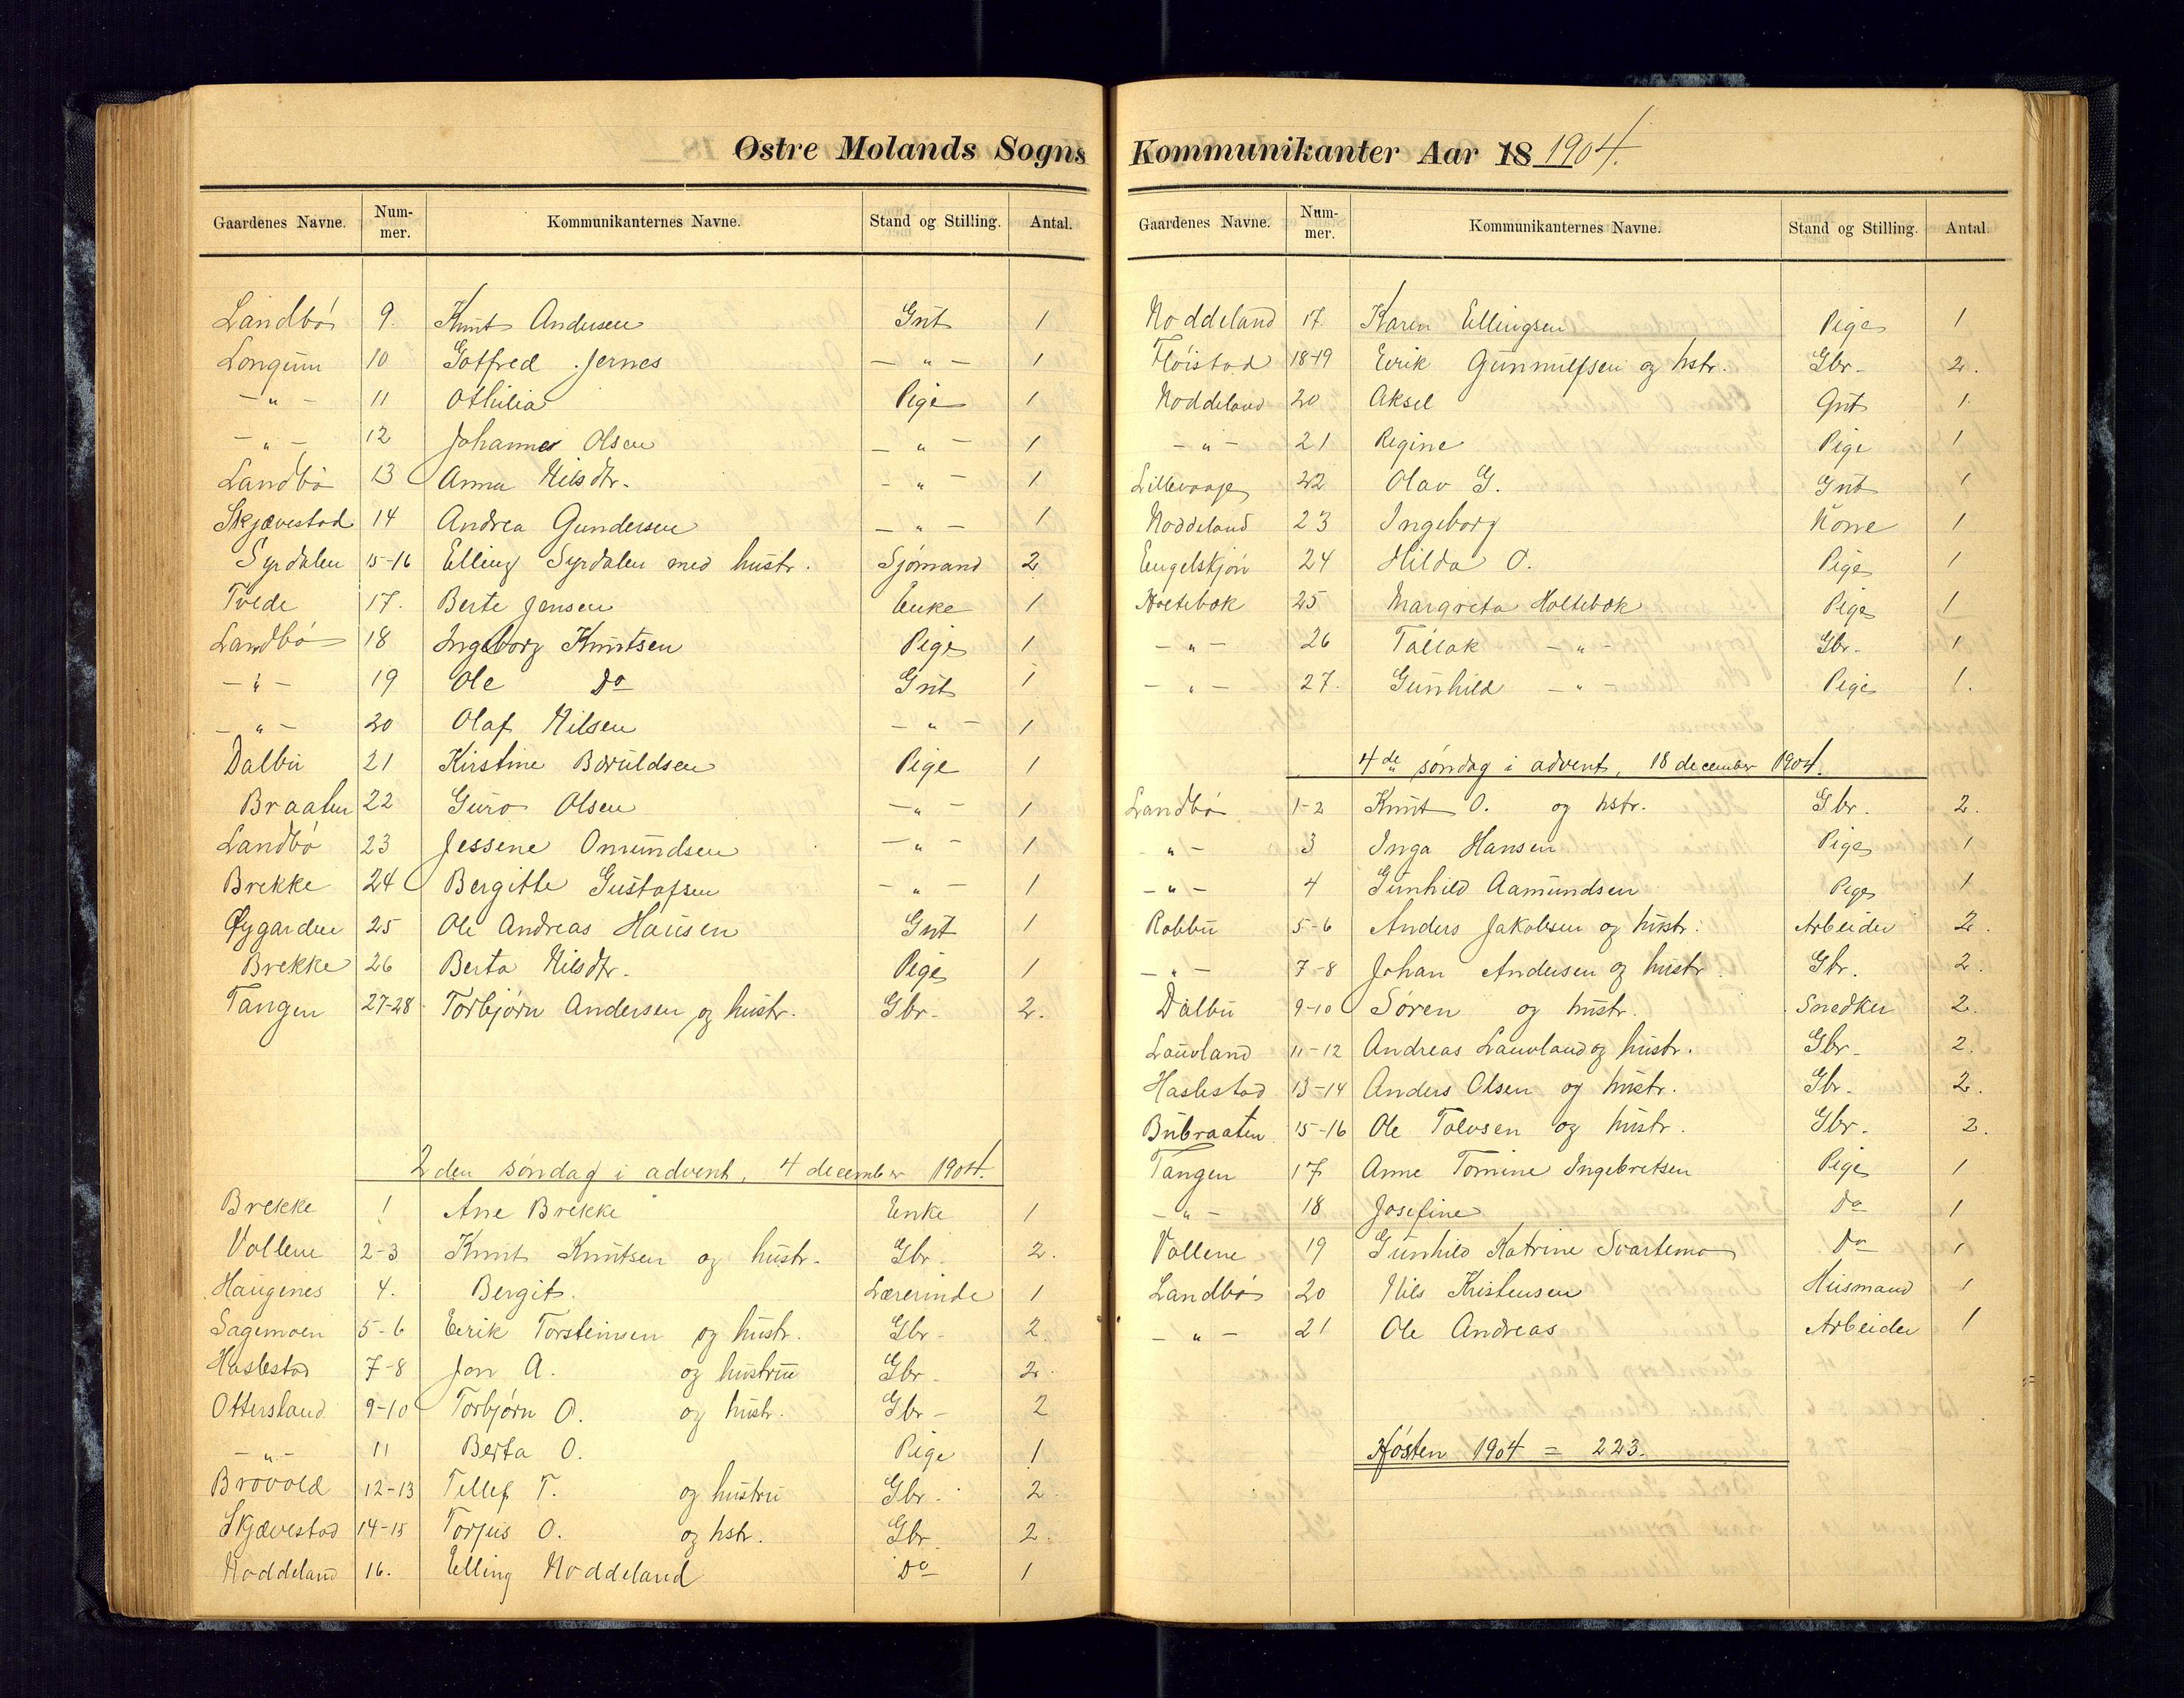 Østre Molands Sogns
Gaardenes Navne. Num-mer. Kommunikanternes Navne. Stand og Stilling. Antal.
Landbø 9. Knut Andersen Gut 1
Longum 10 Gotfred Jernes — " — 1
— " — 11 Othilia Pige 1
— " — 12 Johanne Olsen — " — 1
Landbø 13 Anna Nilsdtr. — " — 1
Skjævestad 14 Andrea Gundersen — " — 1
Syrdalen 15-16 Elling Syrdalen med hustr. Sjømand 2
Tvede 17. Berte Jensen Enke 1
Landbø 18 Ingeborg Knutsen Pige 1
— " — 19 Ole Do Gut 1
— " — 20 Olaf Nilsen — " — 1
Dalbu 21 Kirstine Boruldsen Pige 1
Braaten 22 Guro Olsen — " — 1
Landbø 23 Jessene Omundsen — " — 1
Brekke 24 Bergitte Gustafsen — " — 1
Øygarden 25 Ole Andreas Hansen Gut 1
Brekke 26 Berta Nilsdtr. Pige 1
Tangen 27-28 Torbjørn Andersen og hustr. Gbr. 2.
2den søndag i advent, 4 december 1904.
Brekke 1 Ane Brekke Enke 1
Vollene 2-3 Knut Knutsen og hustr. Gbr. 2.
Haugenes 4. Bergit. Lærerinde 1
Sagemoen 5-6 Eerik Torsteinsen og hustr. Gbr. 2.
Haslestad 7-8 Jon A. og hustru Gbr. 2.
Ottersland 9-10 Torbjørn O. og hustr. Gbr — 2
— " — 11 Berta O. Pige 1
Brovold 12-13 Tellef T. og hustru Gbr. 2.
Skjævestad 14-15 Torjus O. og hstr. Gbr. 2.
Noddeland 16. Elling Noddeland Do 1
Kommunikanter Aar 18 1904.
Gaardenes Navne. Num-mer. Kommunikanternes Navne. Stand og Stilling. Antal.
Noddeland 17. Karen Ellingsen Pige 1
Fløistad 18-19 Eerik Gunnulfsen og hstr. Gbr. 2.
Noddeland 20 Aksel Gut 1
— " — 21 Regine Pige 1
Lillevaaje 22 Olav G. Gut 1
Noddeland 23 Ingeborg Kone 1
Engelskjøn 24 Hilda O. Pige 1
Holtebæk 25 Margreta Holtebæk Pige 1
— " — 26 Tallak — " — Gbr. 1
— " — 27. Gunhild — " — Pige 1.
4de søndag i advent, 18 december 1904.
Landbø 1-2 Knut O. og hstr. Gbr. 2.
— " — 3 Inga Hansen Pige 1
— " — 4 Gunhild Aamundsen Pige 1
Robbu 5-6 Anders Jakobsen og hustr. Arbeider 2.
— " — 7-8 Johan Andersen og hustr. Gbr. 2.
Dalbu 9-10 Søren og hustr. Snedker 2.
Lauvland 11-12 Andreas Lauvland og hustr. Gbr. 2.
Haslestad 13-14 Anders Olsen og hustr. Gbr. 2.
Bubraaten 15-16 Ole Tolvsen og hustr. Gbr. 2.
Tangen 17 Anne Tomine Ingebretsen Pige 1
— " — 18 Josefine Do 1
Vollene 19 Gunhild Katrine Svartemo Do 1
Landbø 20 Nils Kristensen Husmand 1
— " — 21 Ole Andreas Arbeider 1
Høsten 1904 = 223.